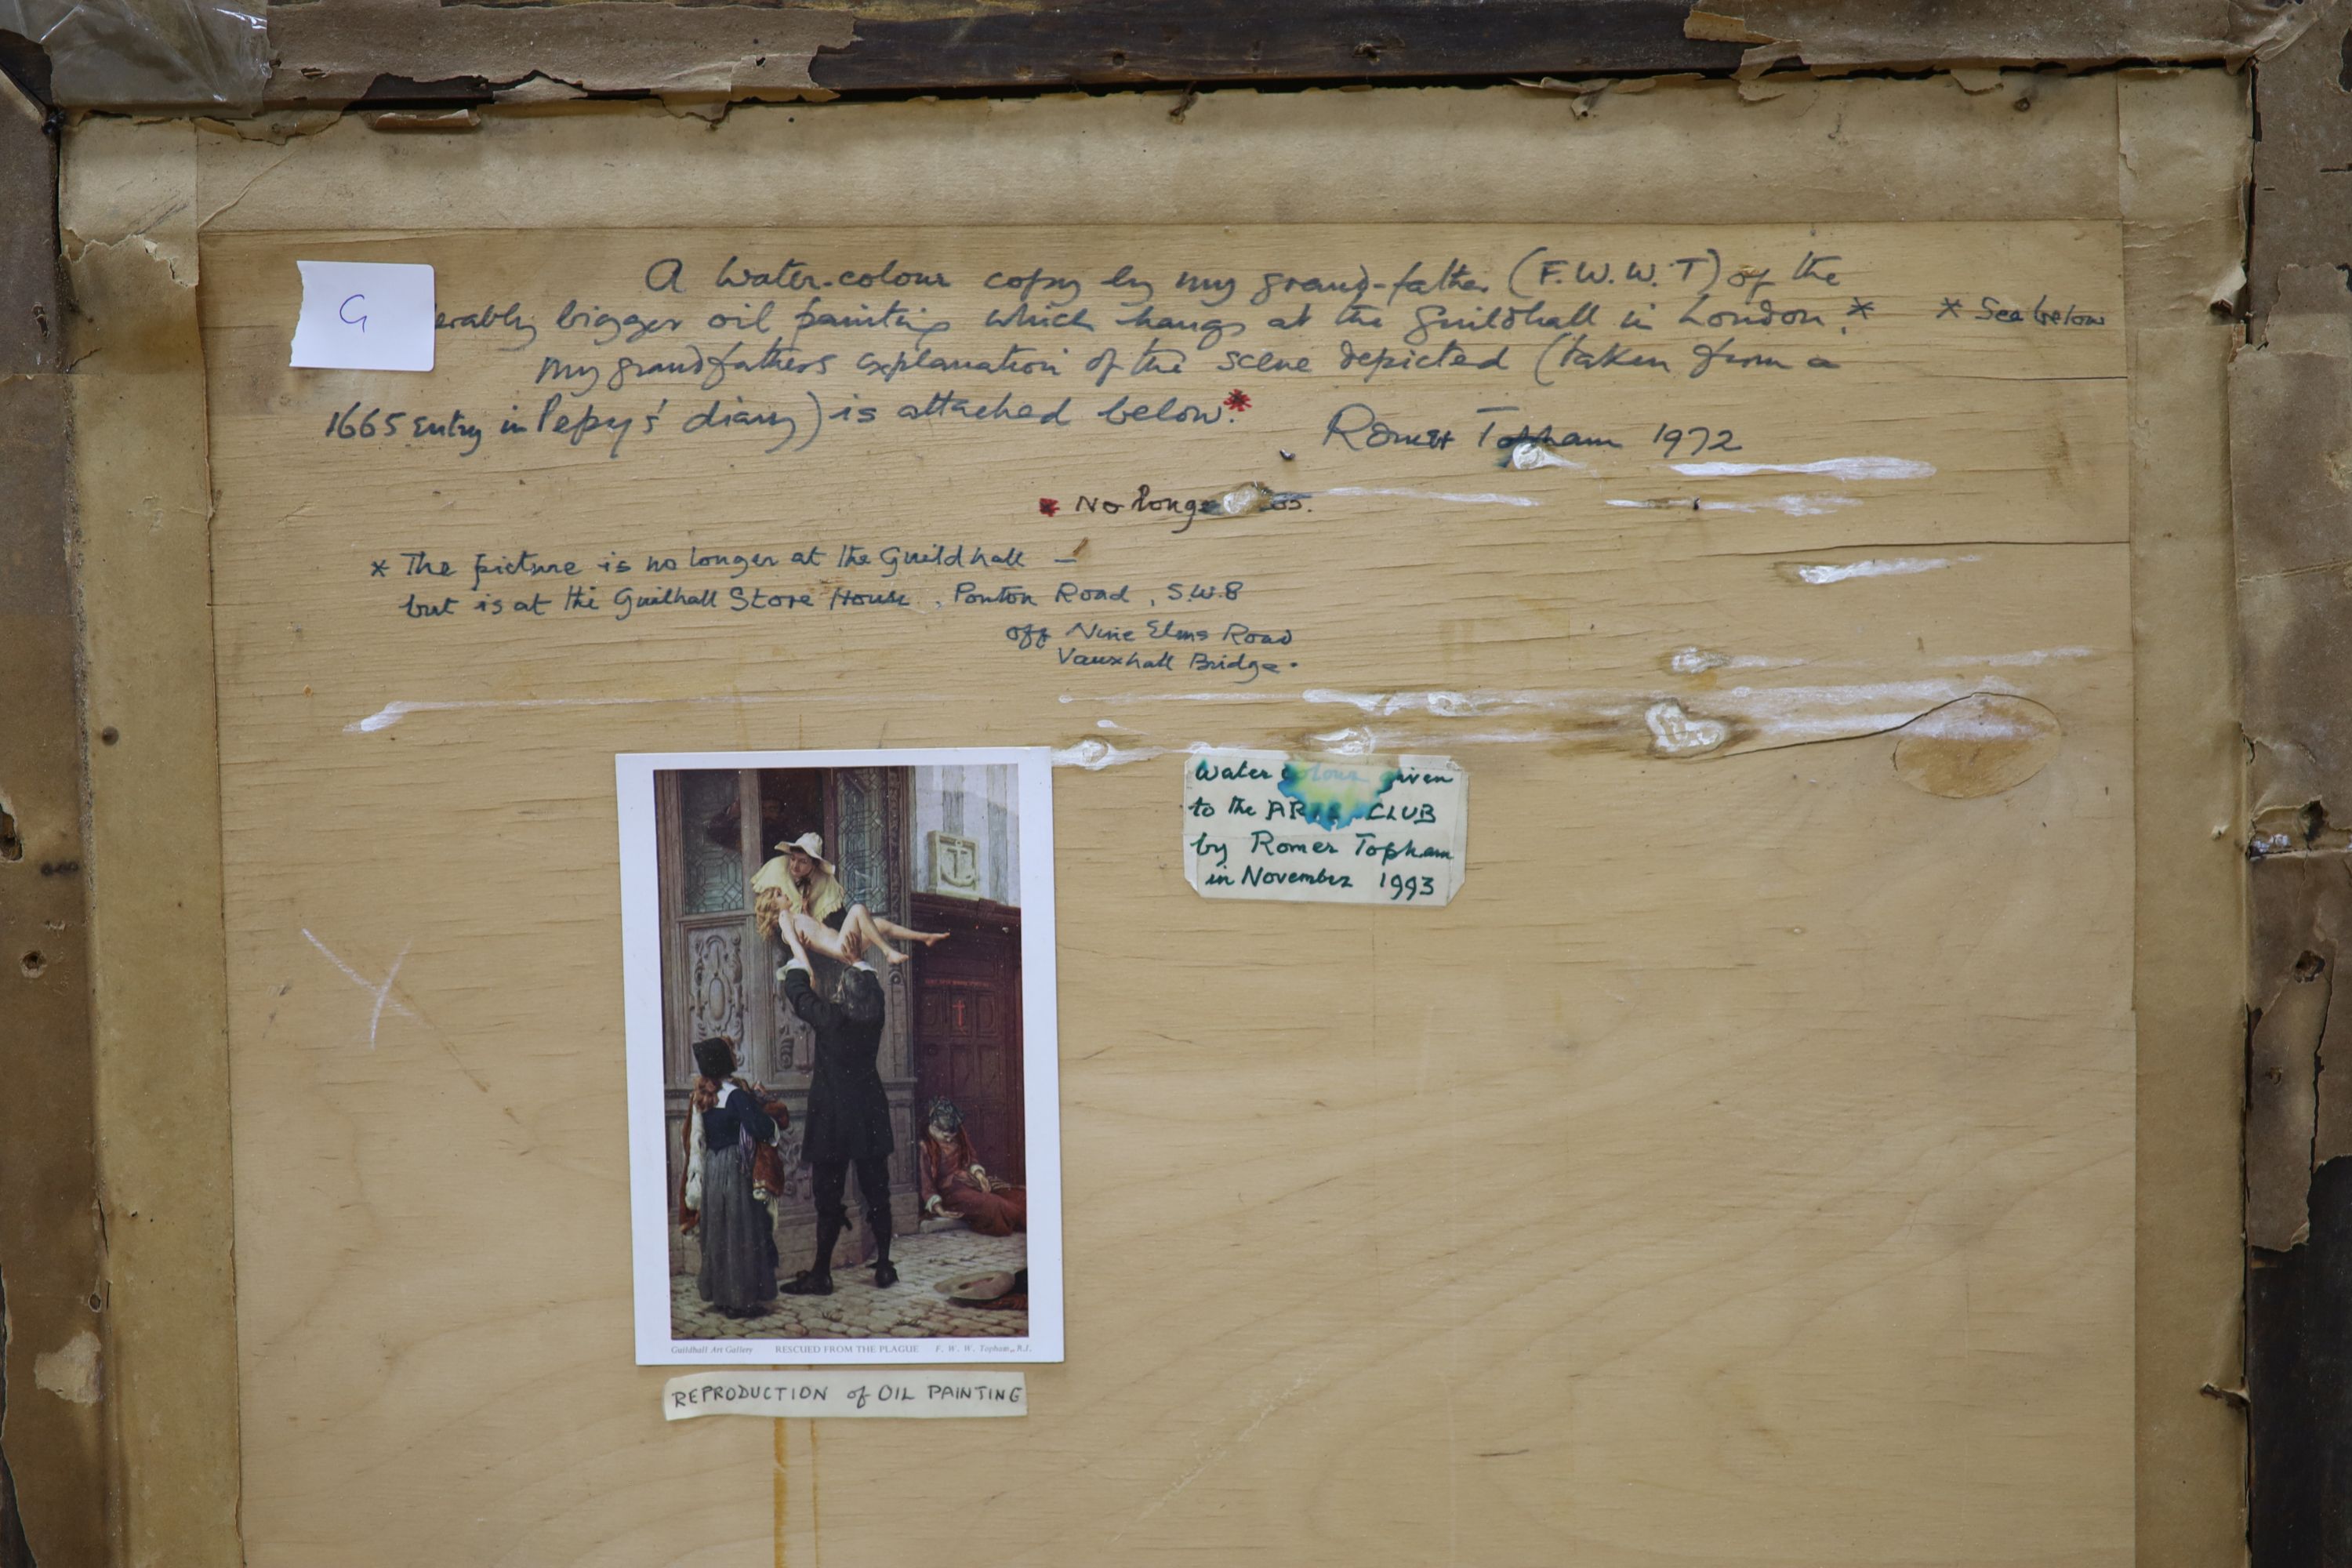 A water-colour copy by my grand-father (F.W.W.T) of the
G
erably bigger oil painting which hangs at the Guildhall in London.* * See below
My grandfathers explanation of the scene depicted (taken from a
1665 entry in Pepy's' diary) is attached below.*
Romer Topham 1972
* No longe
* The picture is no longer at the Guildhall —
but is at the Guilhall Store House, Ponton Road, S.W.8
off Nine Elms Road
Vauxhall Bridge.
Water colour given
to the ARTS CLUB
by Romer Topham
in November 1993
Guildhall Art Gallery RESCUED FROM THE PLAGUE F. W. W. Topham, R.I.
REPRODUCTION of OIL PAINTING